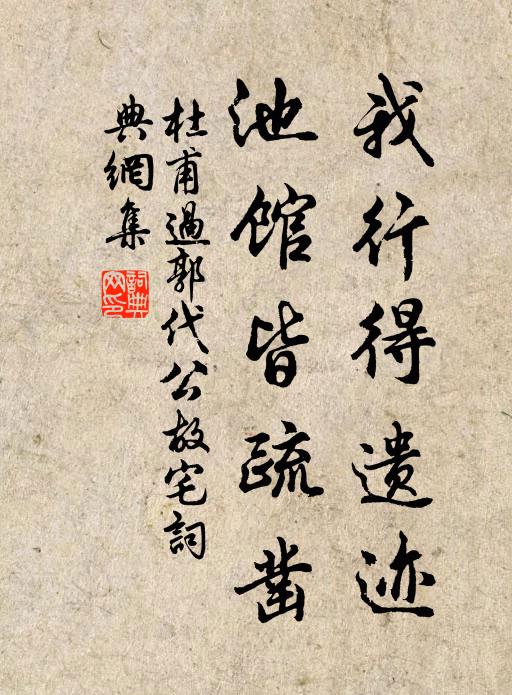 我行得遗迹
池馆皆疏凿
杜甫過郭代公故宅詞
典網集
詞典网印